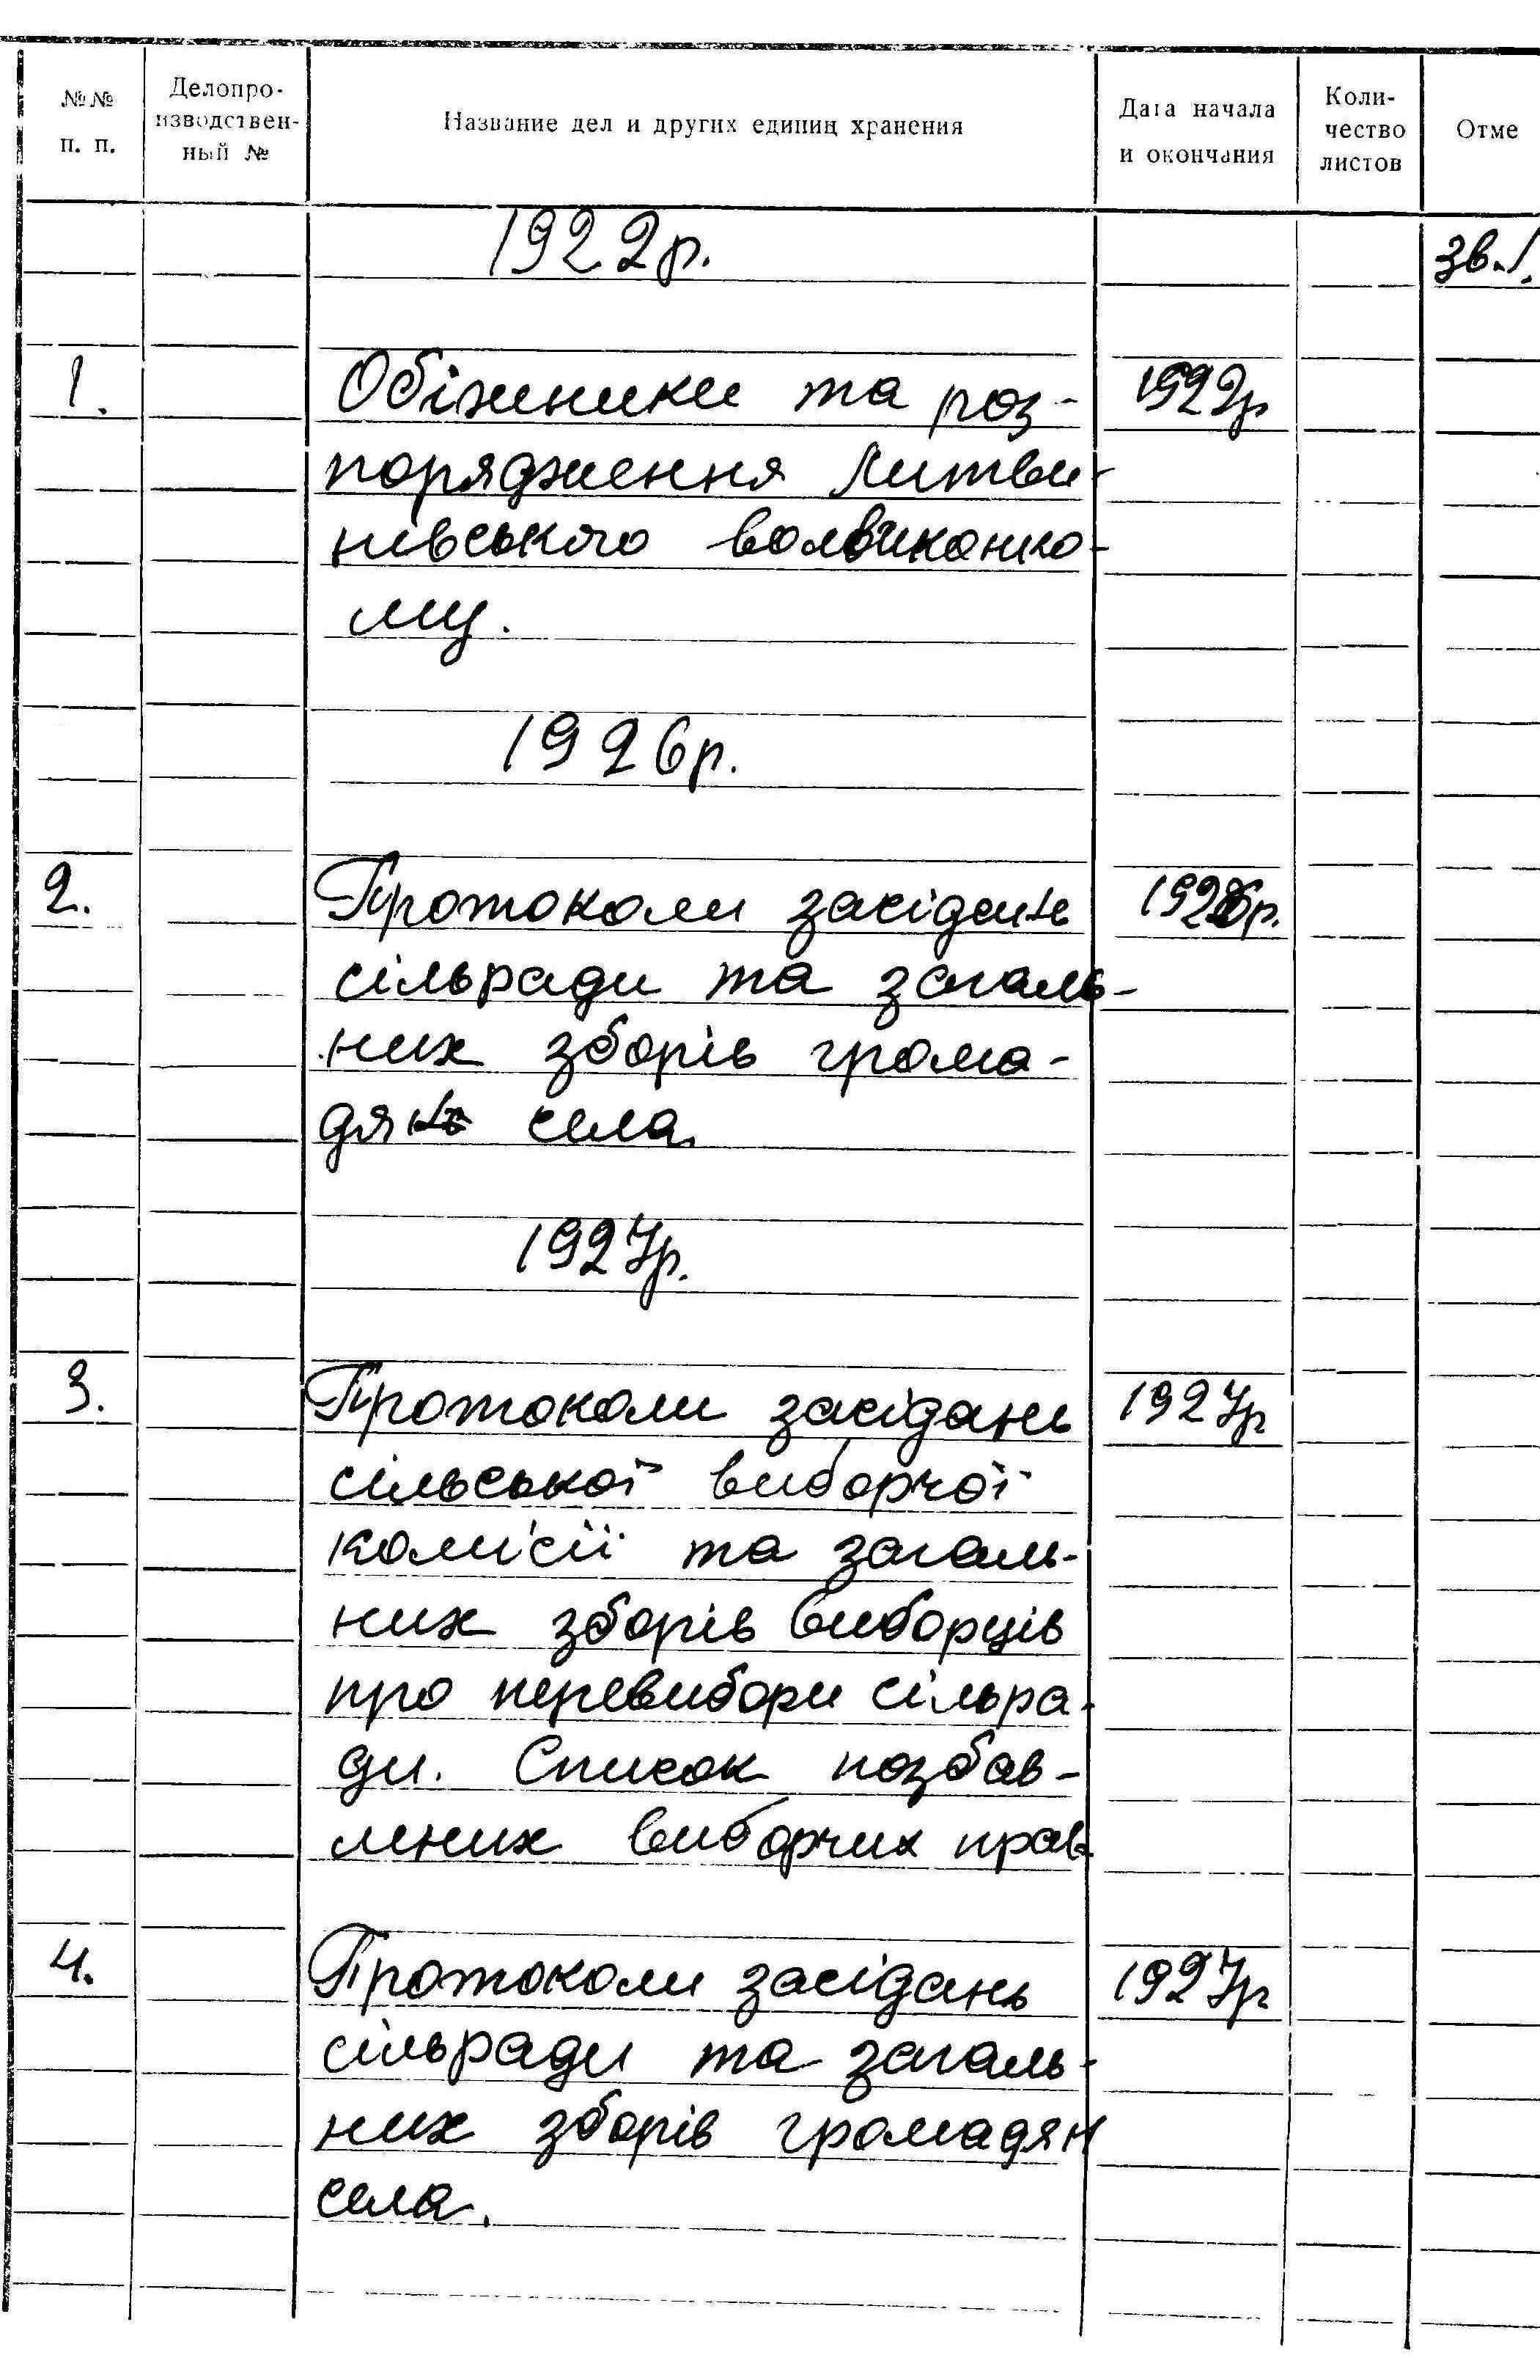 №№ п. п.
Делопро-
изводствен-
ный №
Название дел и других единиц хранения
Дата начала
и окончания
Коли-
чество
листов
Отме
1922р.
зв.1.
1. Обіжники та роз- 1922р
порядження Литви-
нівського волвиконко-
му.
1926р.
2. Протоколи засідань 1926р.
сільради та загаль-
них зборів грома-
дян села
1927р.
3. Протоколи засідань 1927р
сільської виборчої
комісії та загаль-
них зборів виборців
про перевибори сільра-
ди. Список позбав-
лених виборчих прав
4. Протоколи засідань 1927р
сільради та загаль-
них зборів громадян
села.